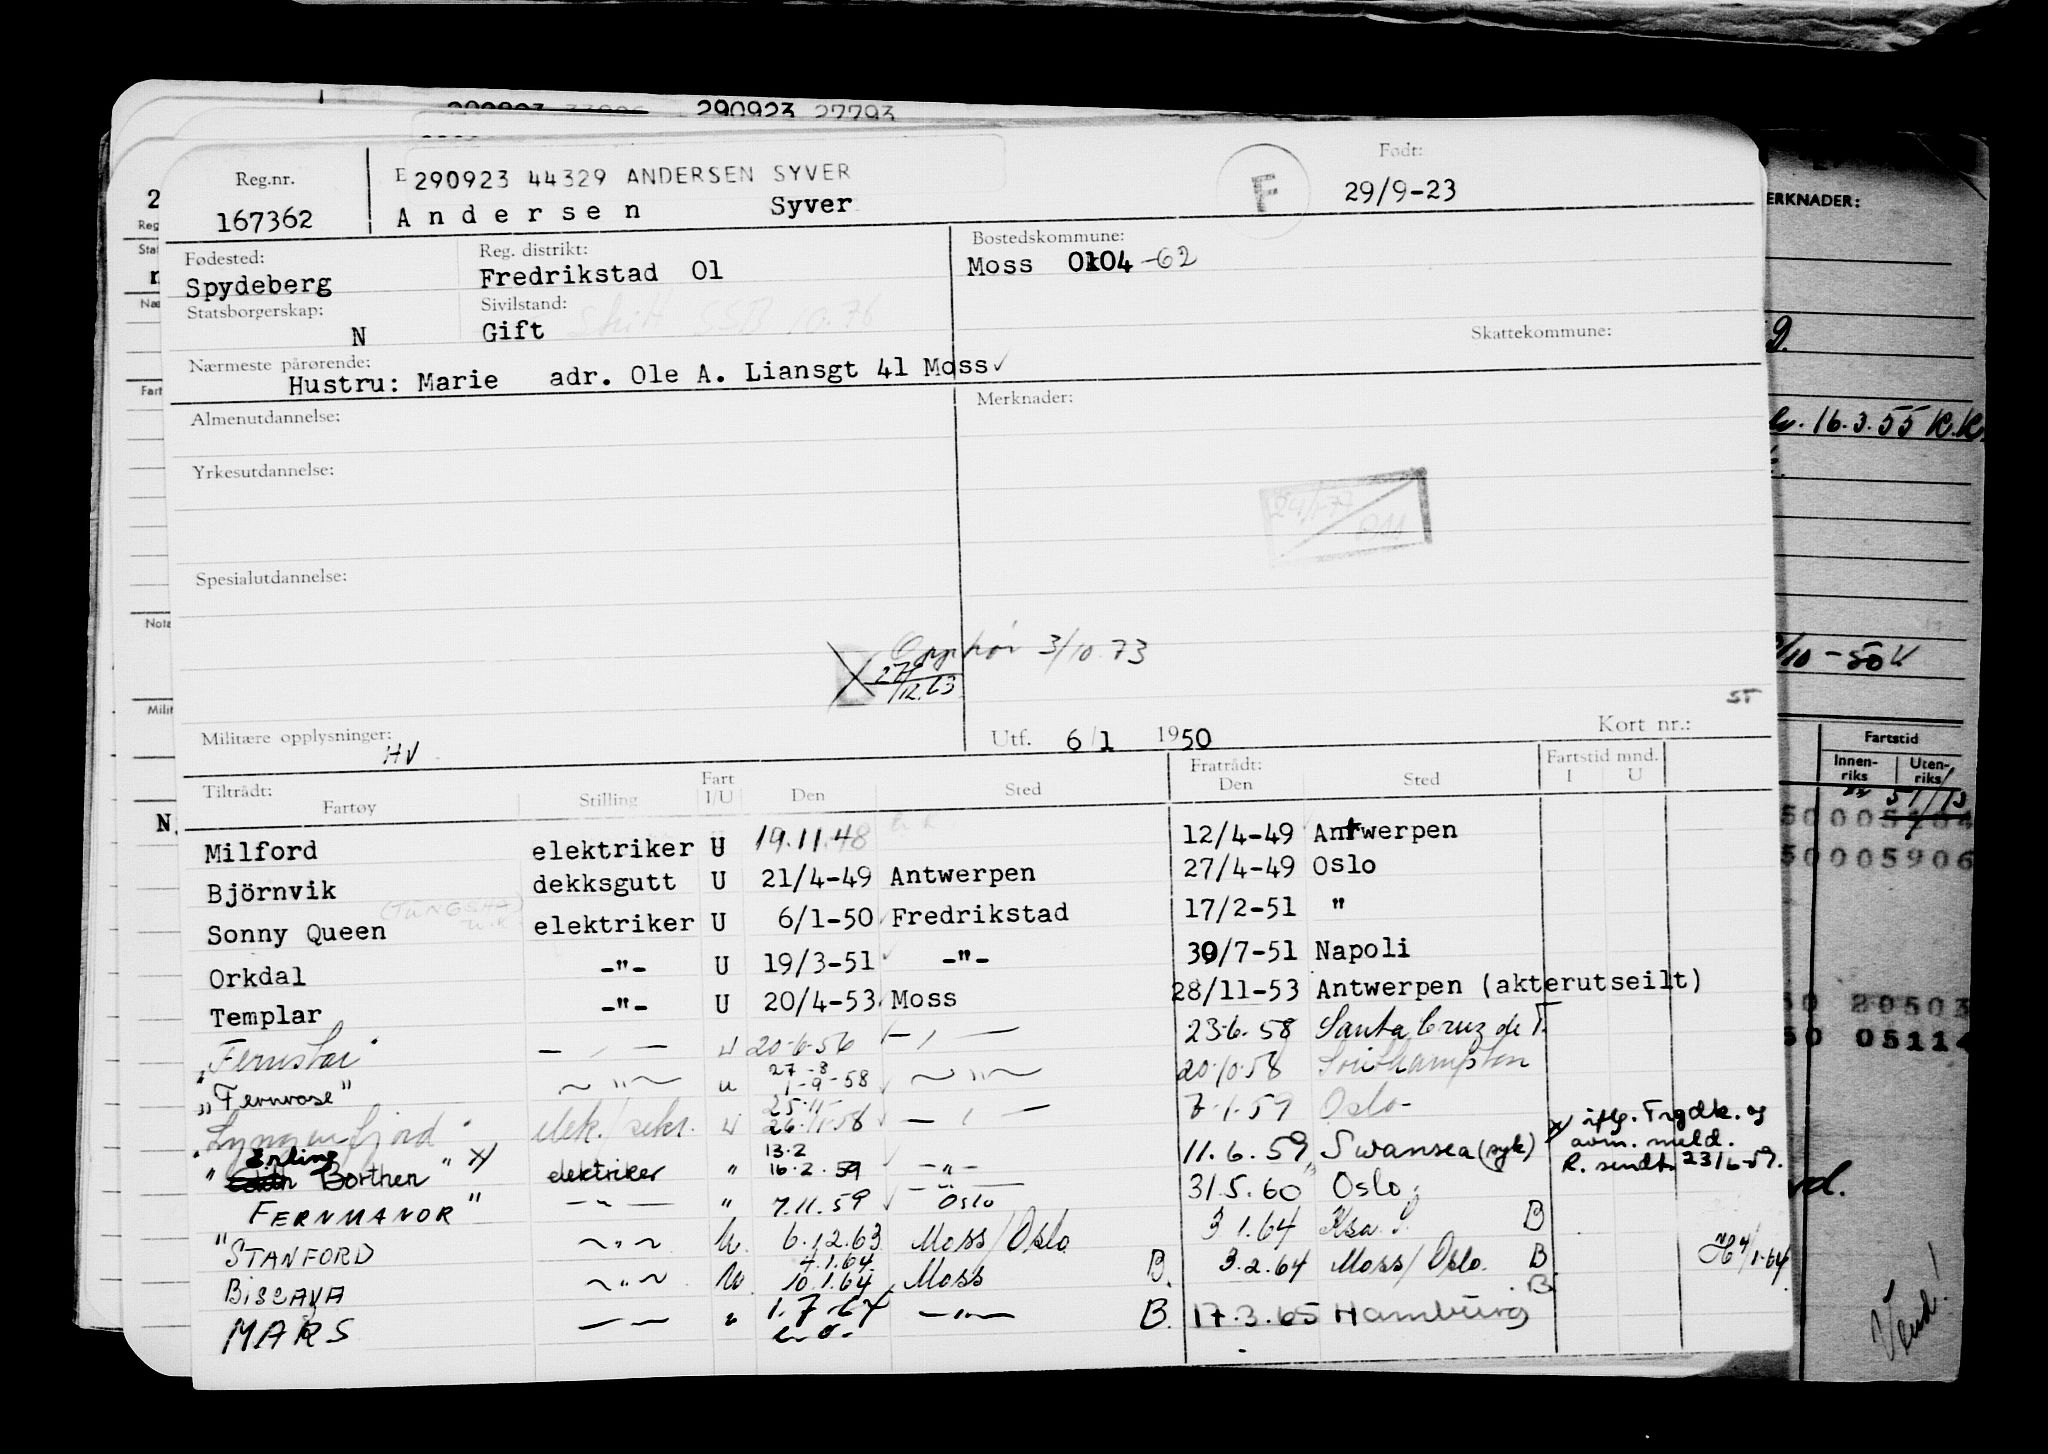 290923 27793
Reg.nr.
167362
E 290923 44329 ANDERSEN SYVER
Andersen Syver
F
Født:
29/9-23
Fødested:
Spydeberg
Reg. distrikt:
Fredrikstad 01
Bostedskommune:
Moss 0104 -62
Statsborgerskap:
N
Sivilstand:
Gift
Skattekommune:
Nærmeste pårørende:
Hustru: Marie adr. Ole A. Liansgt 41 Moss
Almenutdannelse:
Merknader:
Yrkesutdannelse:
Spesialutdannelse:
Opphør 3/10.73
Militære opplysninger:
HV
Utf. 6/1 1950
Kort nr.:
Tiltrådt:
Fartøy Stilling Fart I/U Den Sted Fratrådt: Den Sted Fartstid mnd. I U
Milford elektriker U 19.11.48 12/4-49 Antwerpen
Björnvik dekksgutt U 21/4-49 Antwerpen 27/4-49 Oslo
Sonny Queen elektriker U 6/1-50 Fredrikstad 17/2-51 "
Orkdal -"- U 19/3-51 -"- 30/7-51 Napoli
Templar -"- U 20/4-53 Moss 28/11-53 Antwerpen (akterutseilt)
"Fernstar" U 20-6-56 23-6-58 Santa Cruz de T.
"Fernrose" -"- u 27-8 1-9-58 -"- 20.10.58 Southampton
Lyngenfjord 25.11 26.11.58 7.1.59 Oslo
"Erling Borthen" x) elektriker " 13.2 16.2.59 -"- 11.6.59 Swansea (syk)
x) iflg. Trgdk. og
avm. meld.
R. sendt 23/6-59.
FERNMANOR" -"- " 7.11.59 Oslo 31.5.60 Oslo
"STANFORD -"- U. 6.12.63 Moss/Oslo 3 1.64 B
BISCAYA -"- U 4.1.64 10.1.64 Moss B. 3.2.64 Moss/Oslo. B
MARS -"- " 1.7.64 -"- B. 17.3.65 Hamburg B
ERKNADER:
16.3.55 K.K.
/10-50
Fartstid
Innenriks
Utenriks
50005906
20503
05114
Vend!